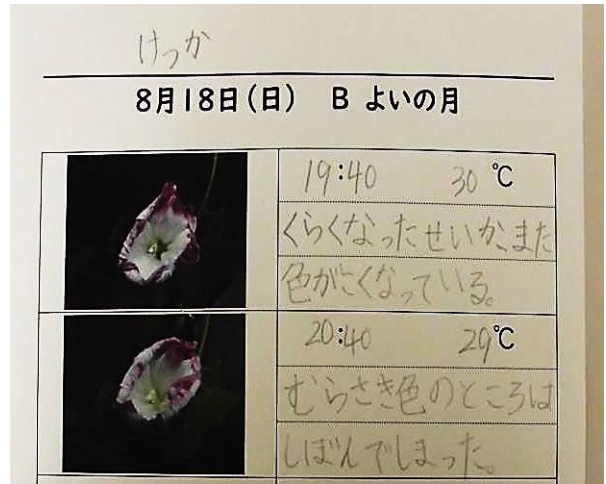 けっか
8月18日(日) B よいの月
19:40 30℃
くらくなったせいか、また
色がこくなっている。
20:40 29℃
むらさき色のところは
しぼんでしまった。